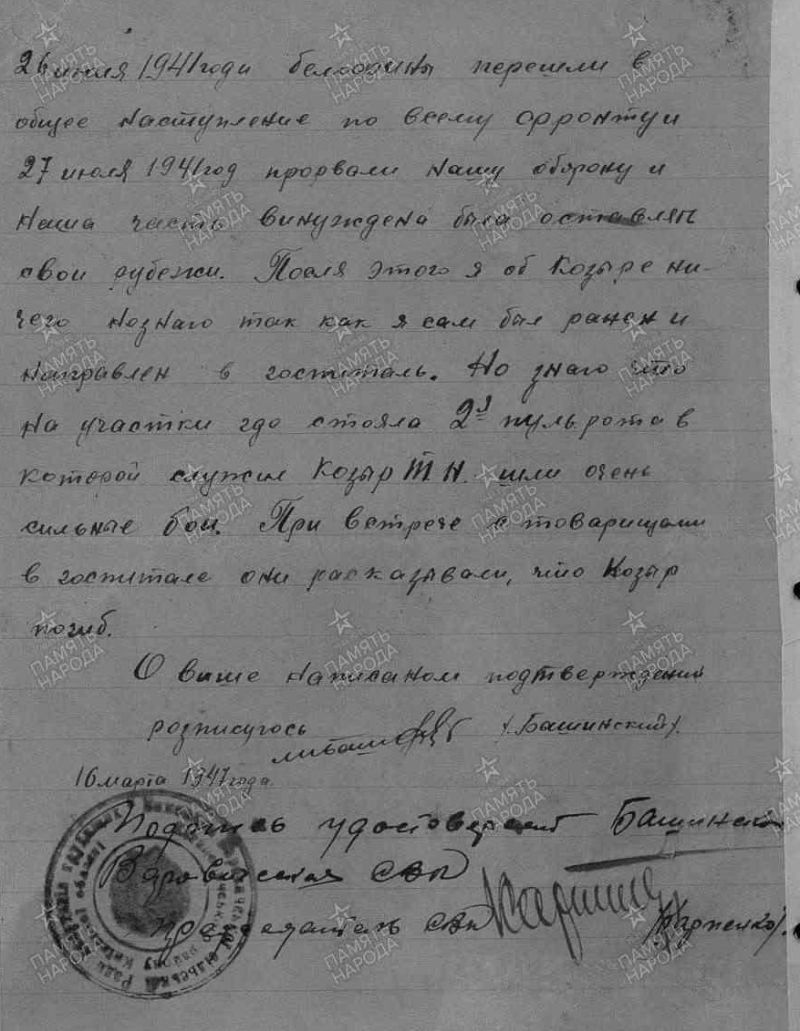 26 июля 1941 годи белофины перешли в
общее наступление по всему фронту и
27 июля 1941 год прорвали нашу оборону и
наша часть винуждена была оставлять
свои рубежи. После этого я об Козыре ни-
чего незнаю так как я сам был ранен и
направлен в госпиталь. Но знаю что
на участки где стояла 2я пульрота в
которой служил Козыр Т Н. шли очень
сильные бои. При встрече с товарищами
в госпитале они расказывали, что Козыр
погиб.
О више написаном подтверждении
розписуюсь (Башинский).
16 марта 1947 года.
Подпись удостоверяет Башинского
председатель
ПАМЯТЬ НАРОДА